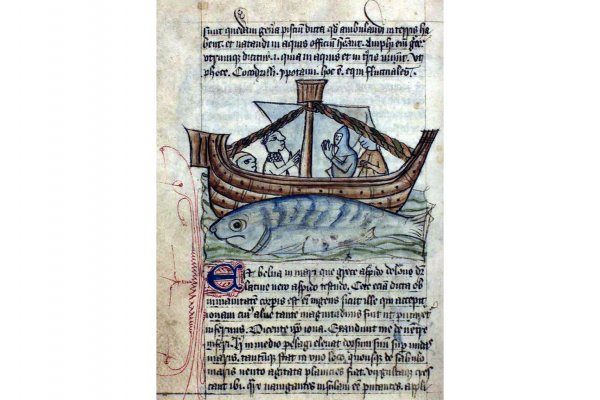 sunt quedam gen̄a pisciū dicta qd̄ ambulandi in terris ha
bent. et natandi in aquis officiū Amphi em̄
dicitur. i. qua in aquis et in t̄ris uiuūt. Vt
phoce. Cocodrilli. ypotami. hoc ē. equi fluctuales.
Est belua in mari que grece aspido delone dr̄
latine uero aspido testudo. Cete eciā dicta ob
immanitatē corp̄is est em̄ ingens sicut ille qui accepit
ionam cui' alue tante magnitudinis fuit ut putaret᷑
infernus. Dicente ip̄o iona. Exaudiuit me de uentre
inferi. in medio pelagi eleuat dorsum suū sup̄ undas
maris. stat in uno loco. quousque de sabulo
maris uento agitata planicies fiat. cres
cant ibi. nauigantes insulam eē putantes. appli